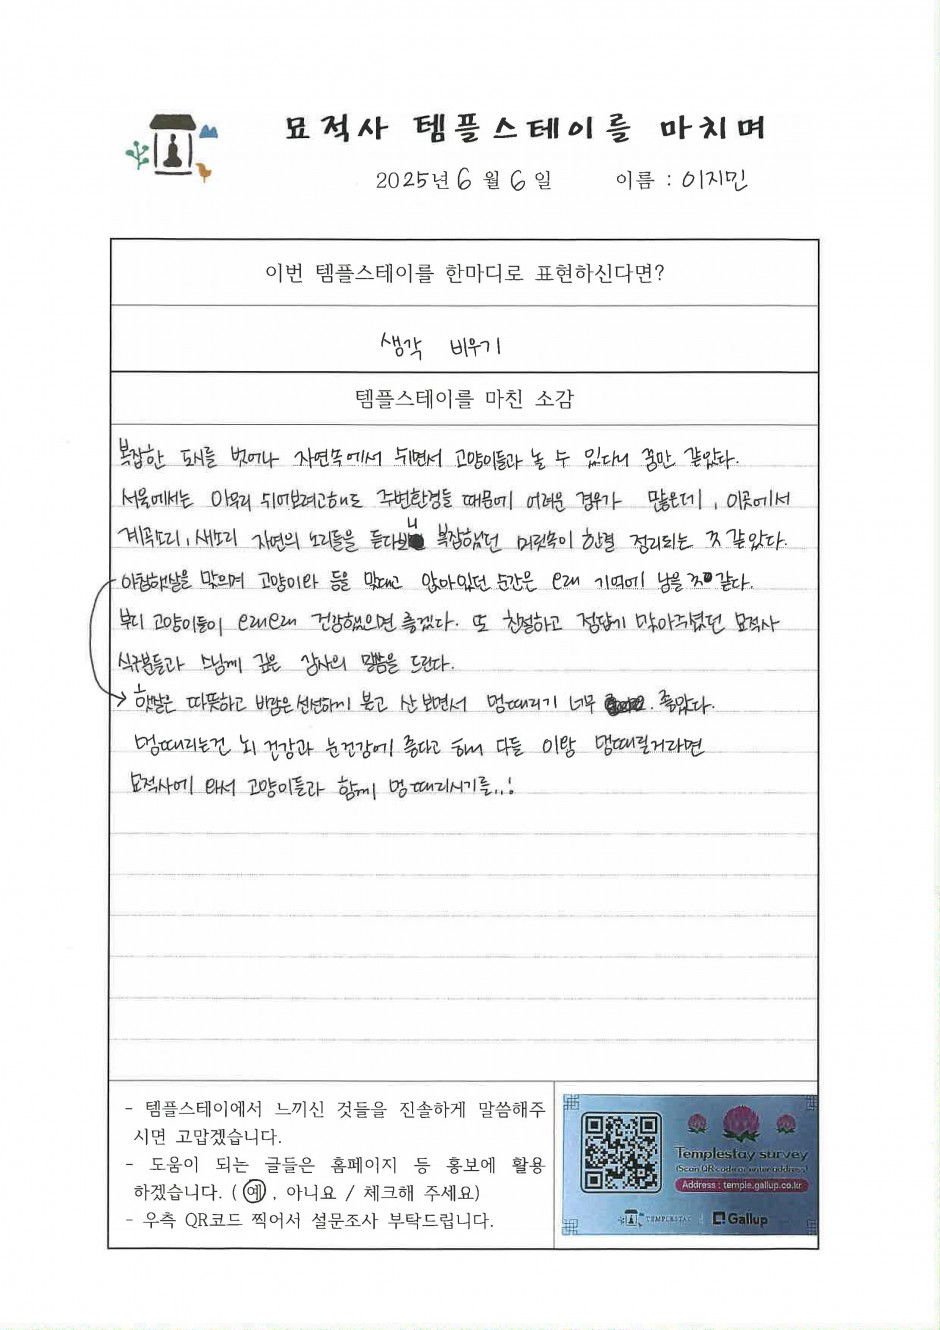 묘적사 템플스테이를 마치며
2025년 6월 6일 이름 : 이지민
이번 템플스테이를 한마디로 표현하신다면?
생각 비우기
템플스테이를 마친 소감
복잡한 도시를 벗어나 자연속에서 쉬면서 고양이들과 놀 수 있다니 꿈만 같았다.
서울에서는 아무리 쉬어보려고해도 주변환경들 때문에 어려운 경우가 많은데, 이곳에서
계곡소리, 새소리 자연의 소리들을 듣다보니 복잡했던 머릿속이 한결 정리되는 것 같았다.
아침햇살을 맞으며 고양이와 등을 맞대고 앉아있던 순간은 오래 기억에 남을 것 같다.
부디 고양이들이 오래오래 건강했으면 좋겠다. 또 친절하고 정답게 맞아주셨던 묘적사
식구분들과 스님께 깊은 감사의 말씀을 드린다.
→ 햇살은 따뜻하고 바람은 선선하니 본고 산 보면서 멍때리기 너무 좋았다.
멍때리는건 뇌 건강과 눈건강에 좋다고 하니 다들 이왕 멍때릴거라면
묘적사에 와서 고양이들과 함께 멍때리시기를..!
- 템플스테이에서 느끼신 것들을 진솔하게 말씀해주
시면 고맙겠습니다.
- 도움이 되는 글들은 홈페이지 등 홍보에 활용
하겠습니다. ( 예 , 아니요 / 체크해 주세요)
- 우측 QR코드 찍어서 설문조사 부탁드립니다.
Templestay survey
(Scan QR code or enter address)
Address : temple.gallup.co.kr
TEMPLESTAY
Gallup